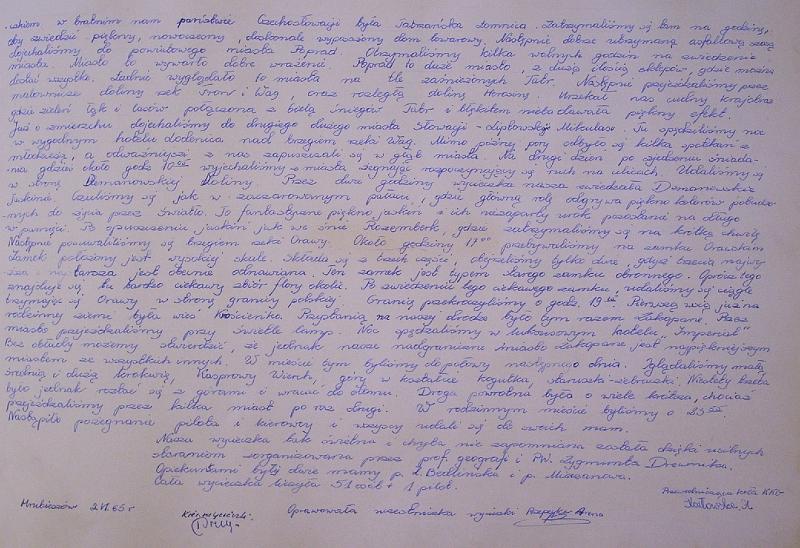 ...skiem, w bratnim nam państwie Czechosłowacji była Tatrzańska Łomnica. Zatrzymaliśmy się tam na godzinę,
aby zwiedzić piękny, nowoczesny, doskonale wyposażony dom towarowy. Następnie dobrze utrzymaną asfaltową szosą
dojechaliśmy do powiatowego miasta Poprad. Otrzymaliśmy kilka wolnych godzin na zwiedzenie
miasta. Miasto to wywarło dobre wrażenie. Poprad to duże miasto, z dużą ilością sklepów, gdzie można
dostać wszystko. Ładnie wyglądało to miasto na tle zaśnieżonych Tatr. Następnie przejeżdżaliśmy przez
malownicze doliny rzek Hron i Wag, oraz rozległą dolinę Urzekał nas cudny krajobraz
gdzie zieleń łąk i lasów połączona z bielą śniegów Tatr i błękitem nieba dawała piękny efekt.
Już o zmierzchu dojechaliśmy do drugiego dużego miasta Słowacji - Liptowskiego Mikulasza. Tu spędziliśmy noc
w wygodnym hotelu nad brzegiem rzeki Wag. Mimo późnej pory odbyło się kilka spotkań z
młodzieżą, a odważniejsi z nas zapuszczali się w głąb miasta. Na drugi dzień po zjedzeniu śniada-
nia gdzieś około godz 10⁰⁰ wyjechaliśmy z miasta żegnając rozpoczynający się ruch na ulicach. Udaliśmy się
w stronę Demanowskiej Doliny. Przez dwie godziny wycieczka nasza zwiedzała Demanowskie
Jaskinie. Czuliśmy się jak w zaczarowanym pałacu, gdzie główną rolę odgrywa piękno kolorów pobudzo-
nych do życia przez światło. To fantastyczne piękno jaskiń i ich niezaparty urok pozostanie na długo
w pamięci. Po opuszczeniu jaskiń jak we śnie Rużemberk, gdzie zatrzymaliśmy się na krótką chwilę
Następnie posuwaliśmy się brzegiem rzeki Orawy. Około godziny 17⁰⁰ przebywaliśmy na zamku Orawskim
Zamek położony jest wysokiej skale. Składa się z trzech części, obejrzeliśmy tylko dwie, gdyż trzecia najwyż-
sza i najstarsza jest obecnie odnawiana. Ten zamek jest typem starego zamku obronnego. Oprócz tego
znajduje się tu bardzo ciekawy zbiór flory okolic. Po zwiedzeniu tego ciekawego zamku, udaliśmy się ciągle
trzymając się Orawy w stronę granicy polskiej. Granicę przekroczyliśmy o godz. 19 Pierwszą wsią już na
rodzinnej ziemi była wieś Przystanią na naszej drodze było tym razem Zakopane. Przez
miasto przejeżdżaliśmy przy świetle lamp. Noc spędzaliśmy w luksusowym hotelu "Imperial"
Bez obłudy możemy stwierdzić, że jednak nasze nadgraniczne miasto Zakopane jest najpiękniejszym
miastem ze wszystkich innych. W mieście tym byliśmy do połowy następnego dnia. Zglądaliśmy małą
średnią i dużą krokwię, Kasprowy Wierch, góry w kształcie kogutka, staruszki-żebraczki. Niestety trzeba
było jednak rozstać się z górami i wracać do domu. Droga powrotna była o wiele krótsza, chociaż
przejeżdżaliśmy przez kilka miast po raz drugi. W rodzinnym mieście byliśmy o 23
Nastąpiło pożegnanie pilota i kierowcy i wszyscy udali się do swoich mam.
Nasza wycieczka tak ośzelna i chyba nie zapomniana została dzięki usilnych
staraniom zorganizowana przez prof. geografii i PW. Zygmunta Drewnika.
Opiekunami były dwie mamy p. Z. i p.
Cała wycieczka liczyła 51 osób + 1 pilot.
Hrubieszów 2 VI 65 r
Opracowała uczestniczka wycieczki Arena